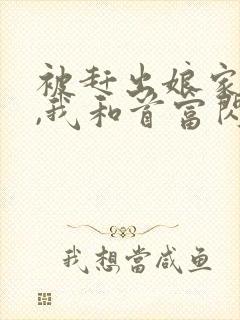 被赶出娘家
,我和首富闪
我想當咸鱼